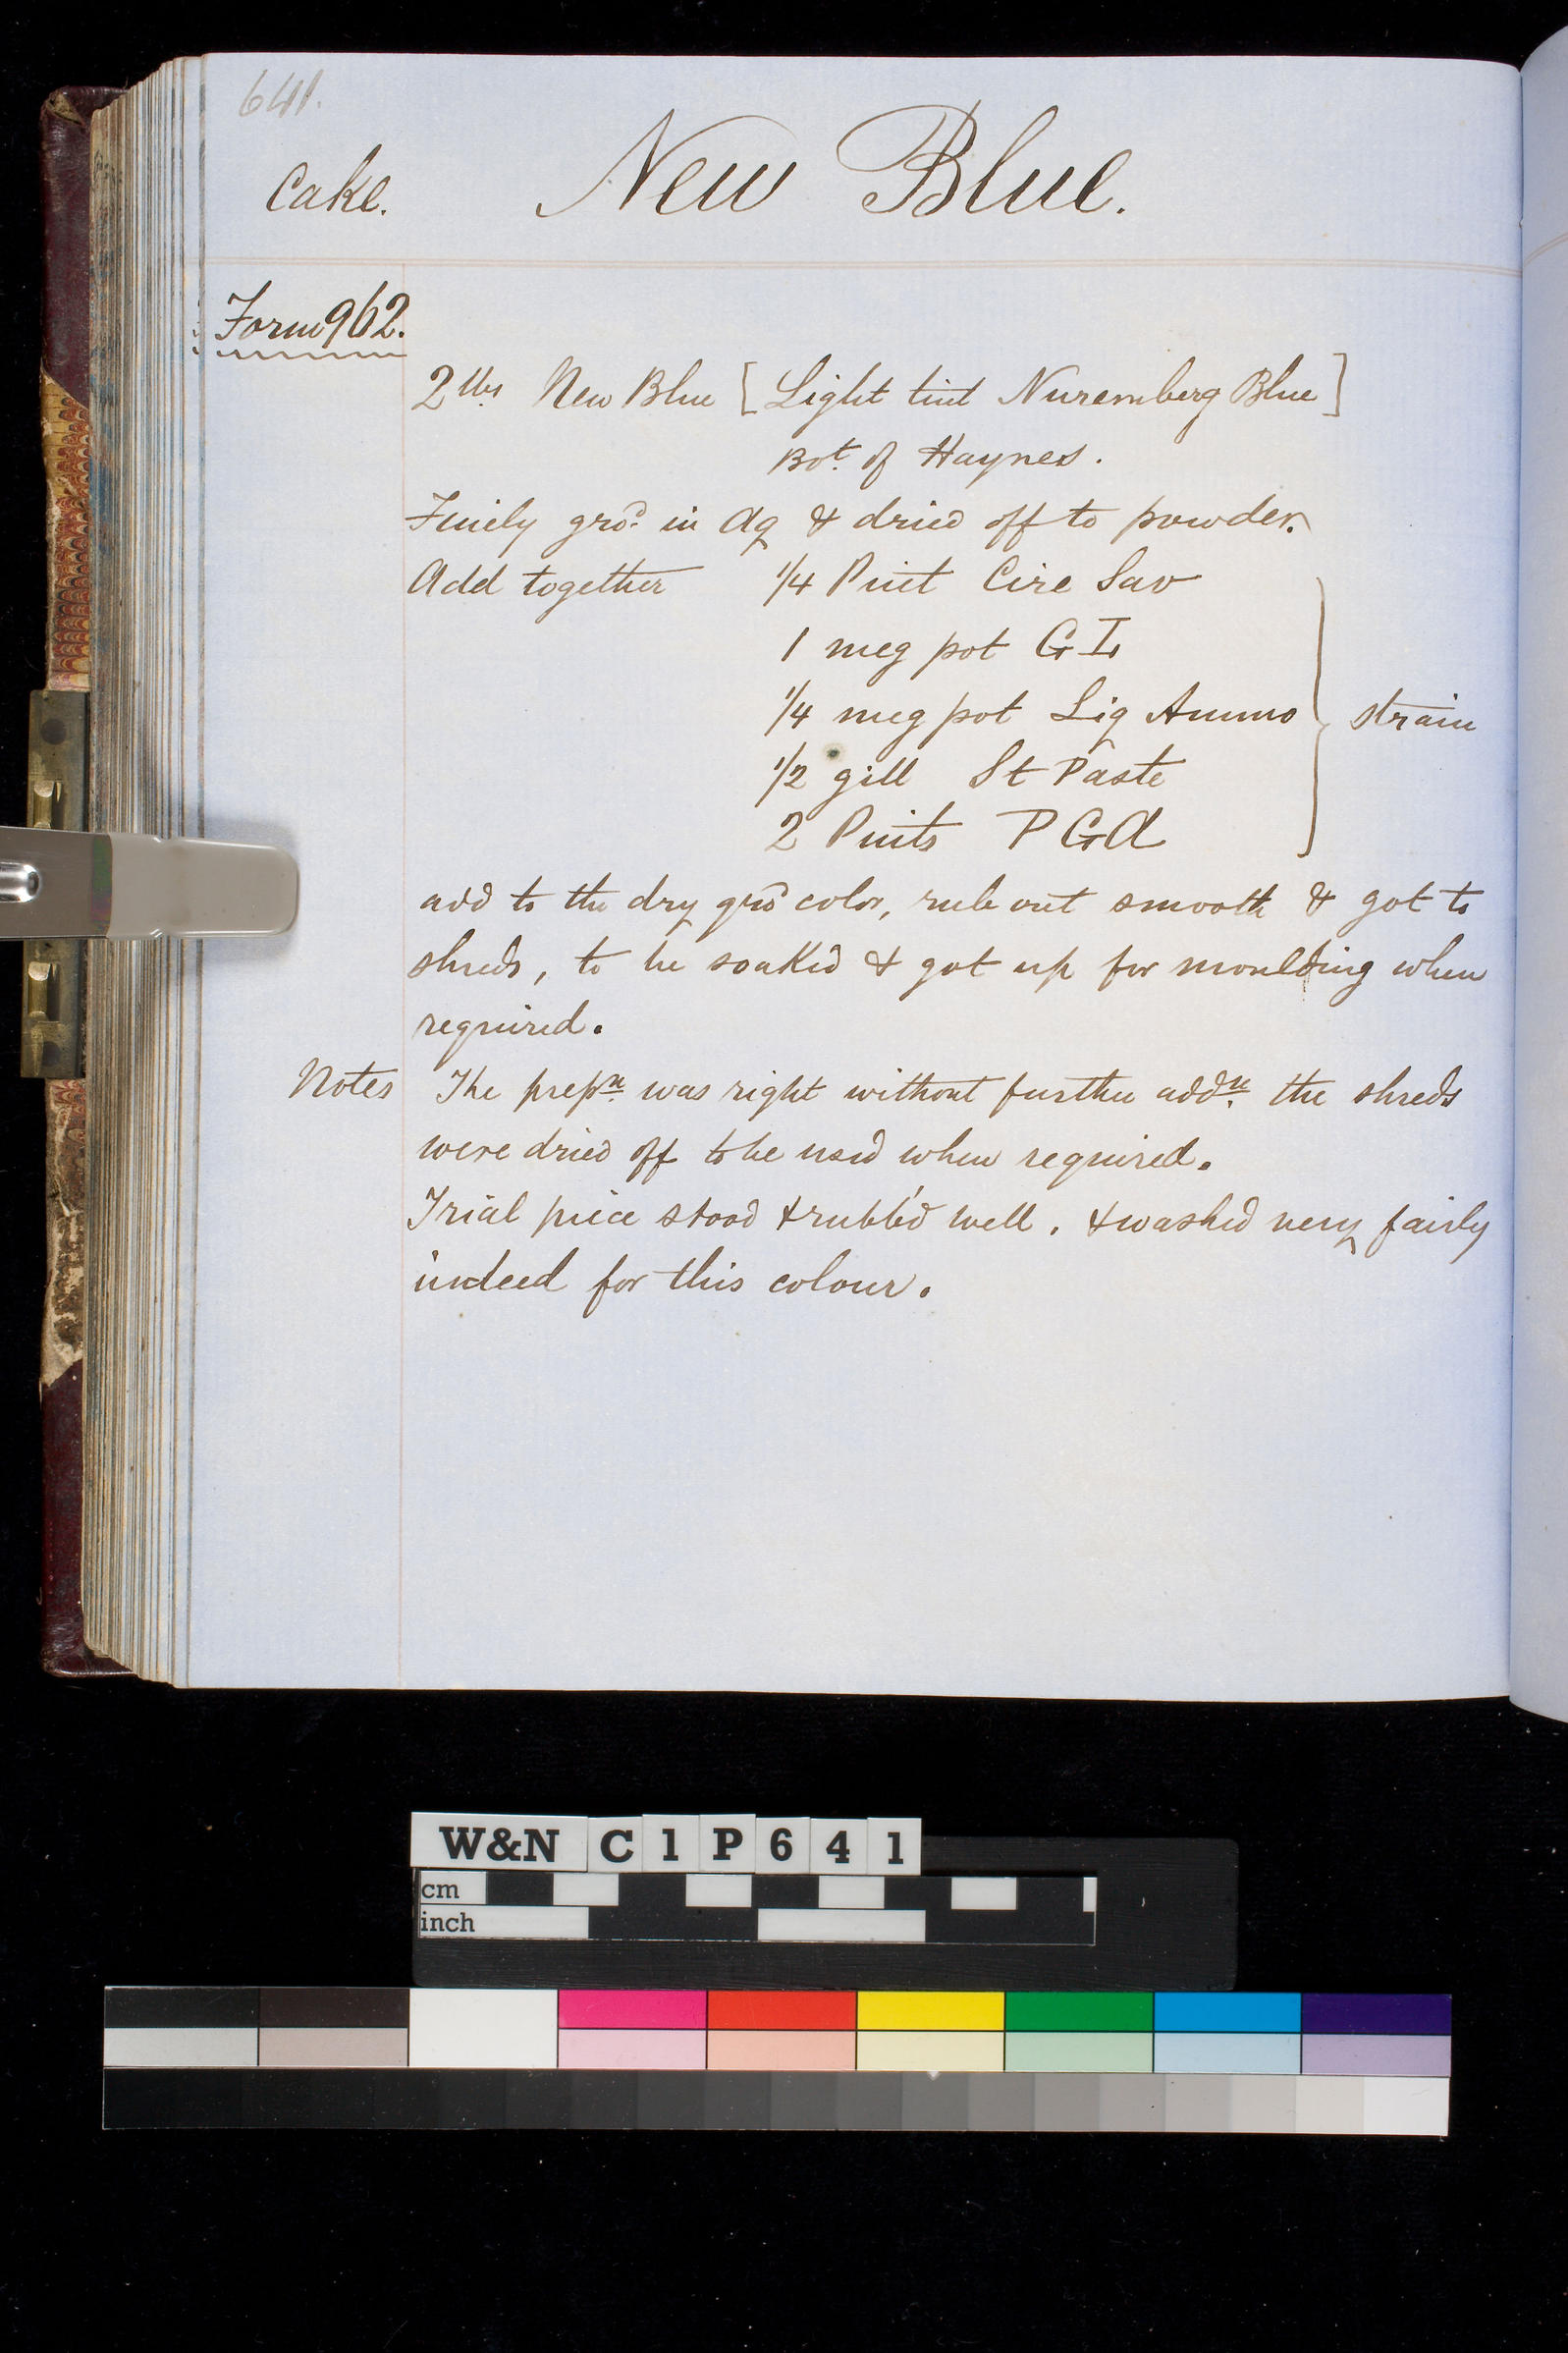 641.
Cake. New Blue.
Form 962.
2 lbs New Blue [ Light tint Nuremberg Blue ]
Bot. of Haynes.
Finely gro.d in Aq & dried off to powder.
Add together 1/4 Pint Cire Sav
1 meg pot G I
1/4 meg pot Liq Ammo } strain
1/2 gill St Paste
2 Pints P G A
add to the dry gro.d color, rub out smooth & got to
shreds, to be soaked & got up for moulding when
required.
Notes The prepn. was right without further addn. the shreds
were dried off to be used when required.
Trial piece stood & rubb'd well. & washed very fairly
indeed for this colour.
W&N C 1 P 6 4 1
cm
inch